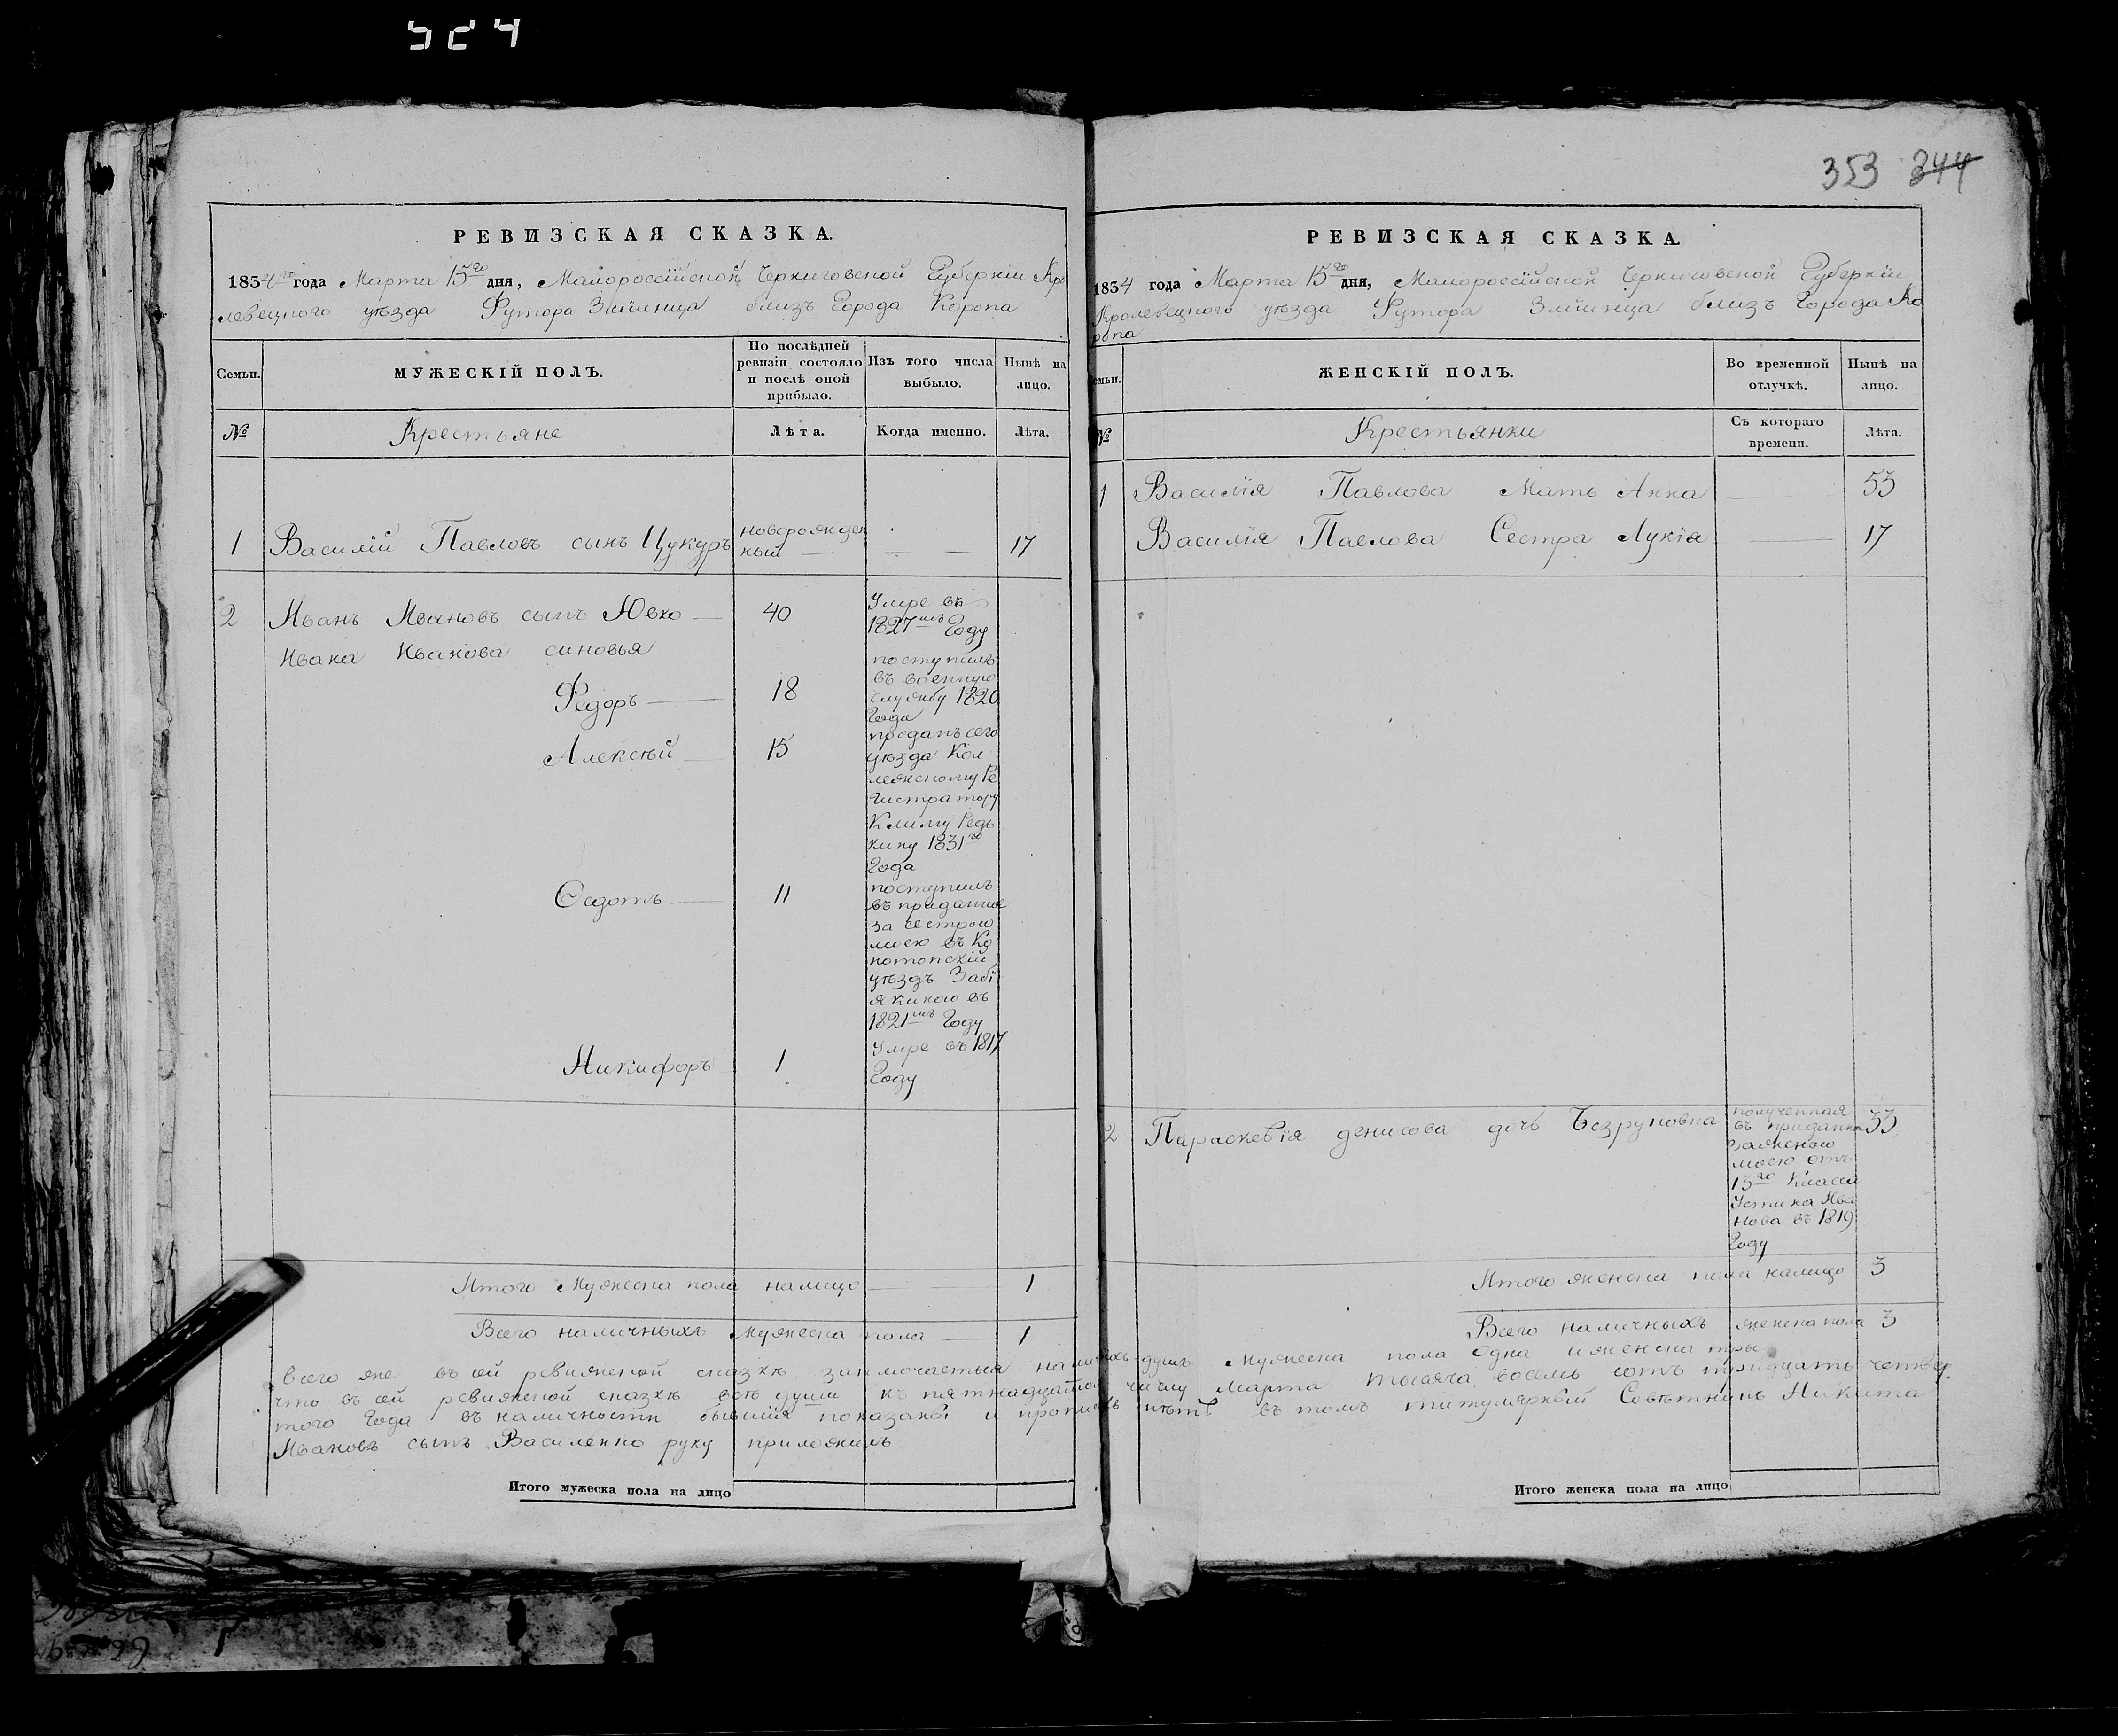 524
353 344
РЕВИЗСКАЯ СКАЗКА.
1834го года Марта 15го дня, Малороссійской Черниговской Губерніи Кро
левецкого уѣзда Футора Зміинца близъ Города Коропа
Семьи.
МУЖЕСКІЙ ПОЛЪ.
По послѣдней
ревизіи состояло
и послѣ оной
прибыло.
Изъ того числа
выбыло.
Нынѣ на
лицо.
№
Крестьяне
Лѣта.
Когда именно.
Лѣта.
1 Василій Павловъ сынъ Цукуръ новорожден
ный — — — 17
2 Иванъ Ивановъ сынъ Юхо — 40 Умре въ
1827мъ Году
Ивана Иванова синовья
Федоръ — 18 поступилъ
въ военную
службу 1820
Года
Алексѣй — 15 проданъ сего
уѣзда Кол
лежскому Ре
гистратору
Климу Редь
кину 1831го
Года
Федотъ — 11 поступилъ
въ приданное
за сестрою
моею въ Ко
нотопскій
уѣздъ Забі
якиною въ
1821мъ Году
Никифоръ 1 Умре въ 1817
Году
Итого Мужеска пола налицо — 1
Всего наличныхъ мужеска пола — 1
РЕВИЗСКАЯ СКАЗКА.
1834 года Марта 15го дня, Малороссійской Черниговской Губерніи
Кролевецкого уѣзда Футора Зміинца близъ Города Ко
ропа
Семьи.
ЖЕНСКІЙ ПОЛЪ.
Во временной
отлучкѣ.
Нынѣ на
лицо.
№
Крестьянки
Съ котораго
времени.
Лѣта.
1 Василія Павлова Мать Анна — 53
Василія Павлова Сестра Лукія — 17
2 Параскевія денисова дочъ Безруковна 33
полученная
въ приданна
за женою
моею отъ
Класса
Устина Ива
нова въ 1819
Году
Итого женска пола налицо 3
Всего наличныхъ женска пола 3
Всего же въ сей ревижской сказкѣ заключаеться наличныхъ душъ мужеска пола одна и женска три
что въ сей ревижской сказкѣ всѣ души къ пятнадцатому числу Марта тысяча восемь сотъ тридцать четвер
того Года въ наличности бывшія показаны и въ томъ титулярный Совѣтникъ Никита
Ивановъ сынъ Василенко руку приложилъ
Итого мужеска пола на лицо
Итого женска пола на лицо